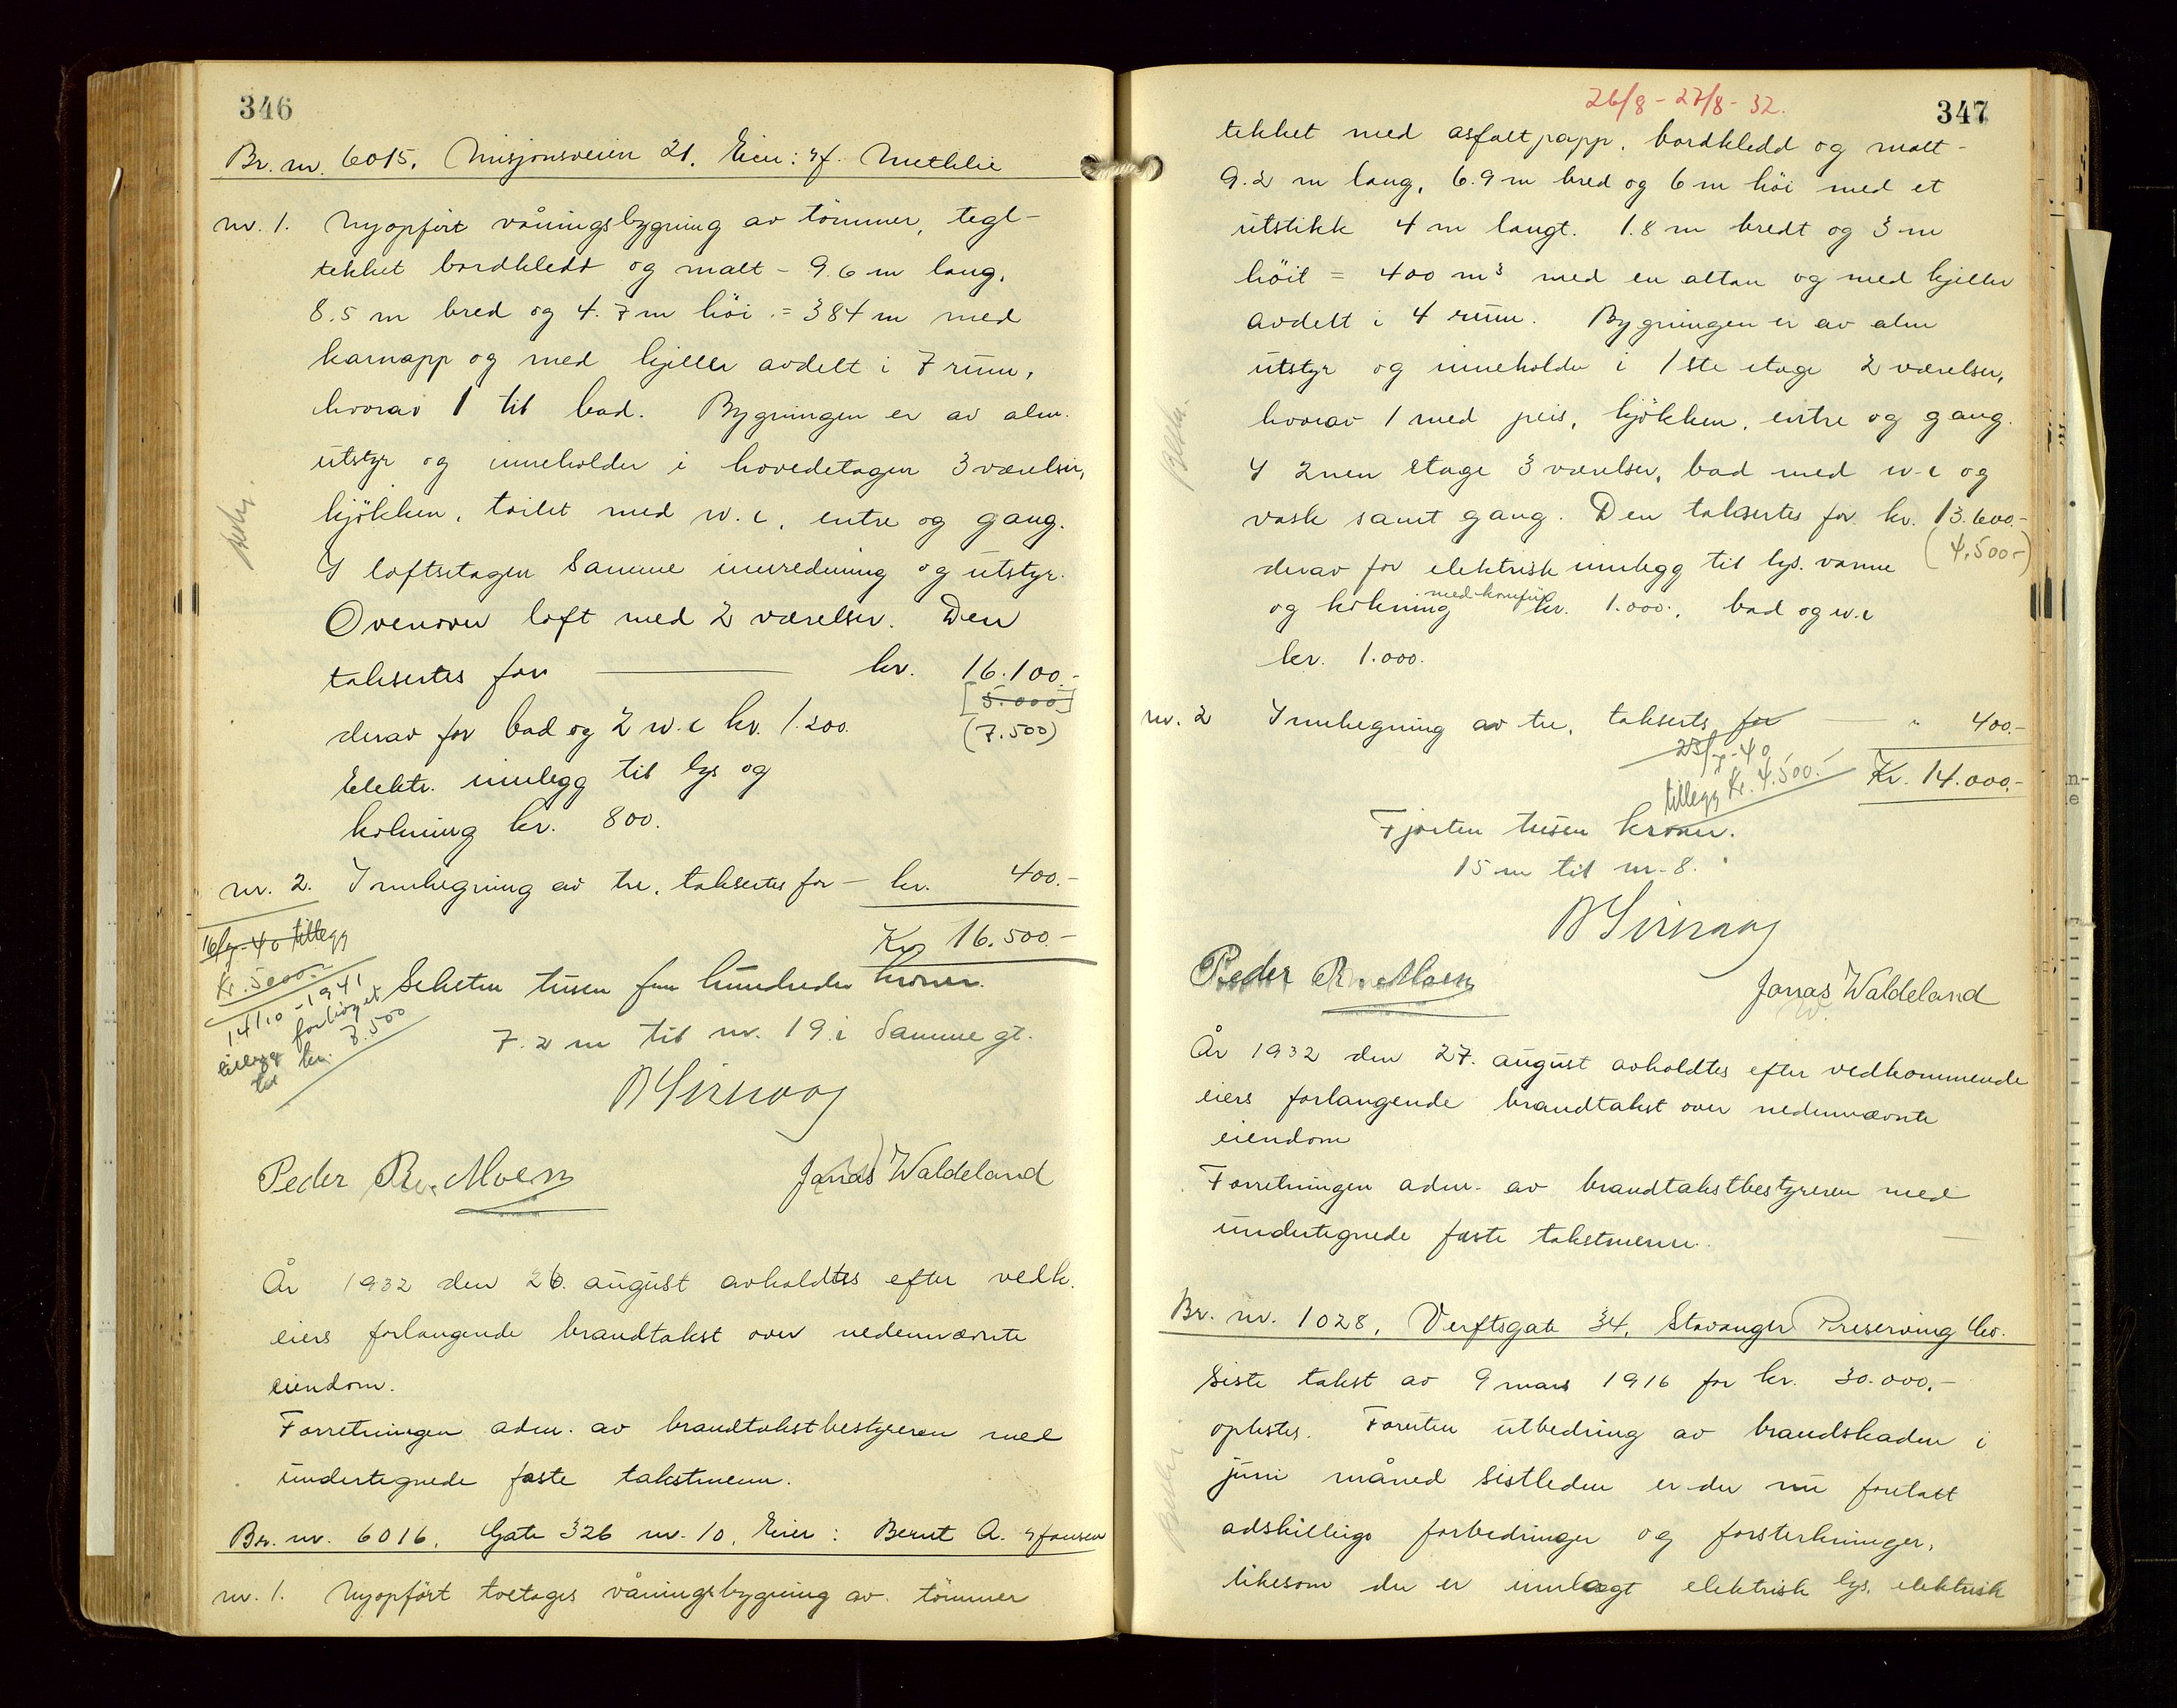 346
Br. nr. 6015. Misjonsveien 21. Eier: Methlie
nr. 1. Nyopført våningsbygning av tømmer, tegl-
tekket bordkledt og malt - 9.6 m lang,
8.5 m bred og 4.7 m høi = 384 m med
karnapp og med kjeller avdelt i 7 rum,
hvorav 1 til bad. Bygningen er av alm.
utstyr og inneholder i hovedetagen 3 værelser,
kjøkken, toilet med w.c, entre og gang.
I loftsetagen samme innredning og utstyr.
Ovenover loft med 2 værelser. Den
taksertes for kr. 16.100.-
[5.000]
derav for bad og 2 w.c kr. 1.200. (7.500)
Elektr. innlegg til lys og
kokning kr. 800.
nr. 2. Innhegning av tre, taksertes for - kr. 400.-
Kr 16.500.-
16/9-40 tillegg
kr. 5000.-
14/10-1941
tillegg forhøyet
til kr. 7.500
Seksten tusen fem hundrede kroner.
7.2 m til nr. 19 i samme gt.
Peder R. Moen Jonas Waldeland
År 1932 den 26. august avholdtes efter vedk.
eiers forlangende brandtakst over nedennævnte
eiendom.
Forretningen adm. av brandtakstbestyreren med
undertegnede faste takstmenn.
Br. nr. 6016. Gate 326 nr. 10. Eier: Bernt A. Hansen
nr. 1. Nyopført toetages våningsbygning av tømmer
26/8 - 27/8 - 32.
347
tekket med asfaltpapp, bordkledd og malt -
9.2 m lang, 6.9 m bred og 6 m høi med et
utstikk 4 m langt. 1.8 m bredt og 3 m
høit = 400 m³ med en altan og med kjeller
avdelt i 4 rum. Bygningen er av alm
utstyr og inneholder i 1ste etage 2 værelser,
hvorav 1 med peis, kjøkken, entre og gang.
I 2nen etage 3 værelser, bad med w-c og
vask samt gang. Den taksertes for kr. 13.600.-
(4.500-)
derav for elektrisk innlegg til lys. varme
og kokning med komfur kr. 1.000., bad og w.c
kr. 1.000.
nr. 2 Innhegning av tre, takserts for " 400.-
23/7-40
tillegg Kr. 4.500.-
Kr. 14.000.-
Fjorten tusen kroner.
15 m til nr. 8.
Peder R. Moen
Jonas Waldeland
År 1932 den 27. august avholdtes efter vedkommende
eiers forlangende brandtakst over nedennævnte
eiendom
Forretningen adm. av brandtakstbestyreren med
undertegnede faste takstmenn.
Br. nr. 1028. Verftsgate 34. Stavanger Preserving Co.
Siste takst av 9 mars 1916 for kr. 30.000.-
oplestes. Foruten utbedring av brandskaden i
juni måned sistleden er der nu foretatt
adskillige forbedringer og forsterkninger,
likesom der er innlagt elektrisk lys, elektrisk